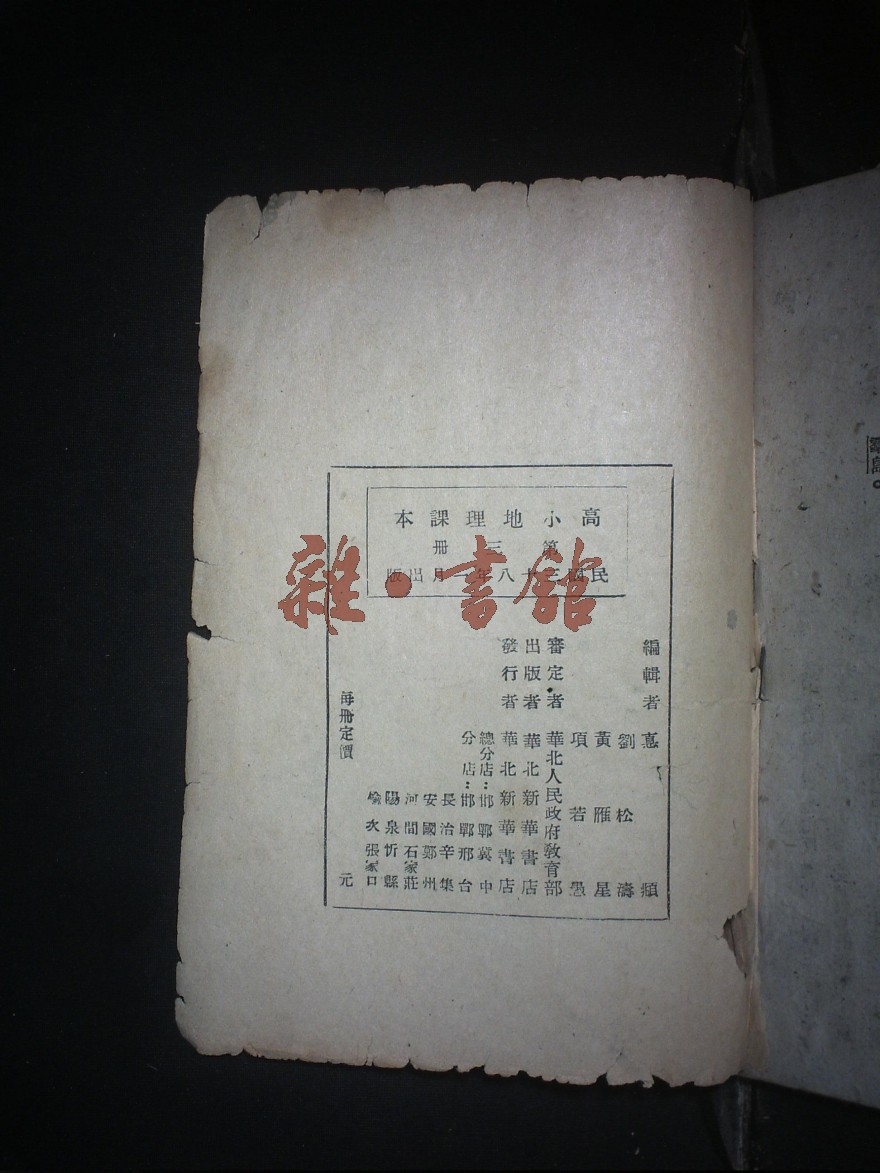 高小地理課本
第三冊
民國三十八年一月出版
編輯者 惠頫
劉松濤
黃雁星
項若愚
審定者 華北人民政府教育部
出版者 華北新華書店
發行者 華北新華書店
總分店：邯鄲冀中
分店：邯鄲邢台
長治辛集
安國鄭州
河間石家莊
陽泉忻縣
榆次張家口
每冊定價 元
雜·書館